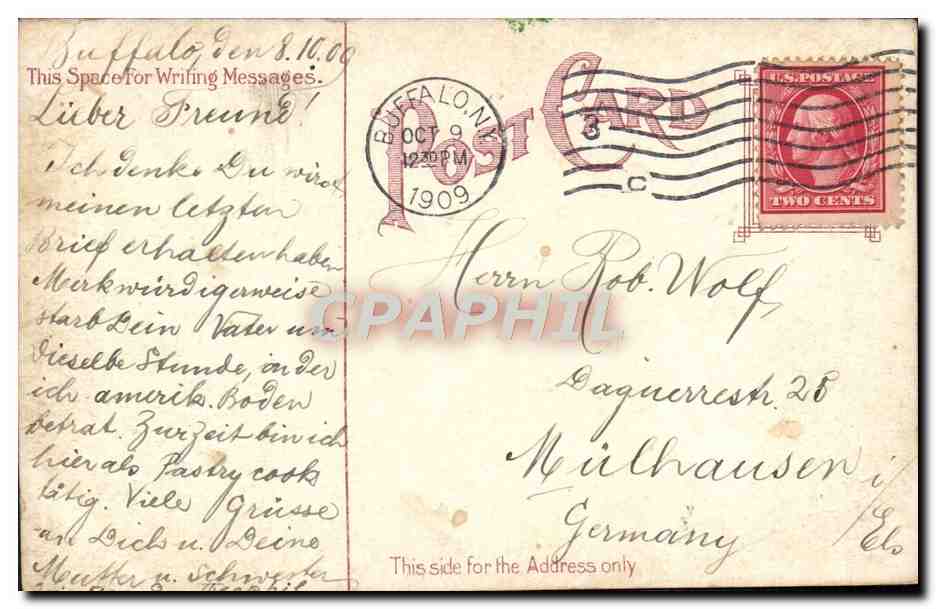 Buffalo, den 8.10.09
This Space for Writing Messages.
Lieber Freund!
Ich denke Du wirst
meinen letzten
Brief erhalten haben
Merkwürdigerweise
starb Dein Vater um
dieselbe Stunde, in der
ich amerik. Boden
betrat. Zur Zeit bin ich
hier als Pastry cook
tätig. Viele Grüsse
an Dich u. Deine
Mutter u. Schwester
POST CARD
BUFFALO, N.Y.
OCT 9
12 30 PM
1909
3
C
U.S. POSTAGE
TWO CENTS
Herrn Rob. Wolf
Daguerrestr. 28
Mülhausen i/
Els
Germany
This side for the Address only
CPAPHIL